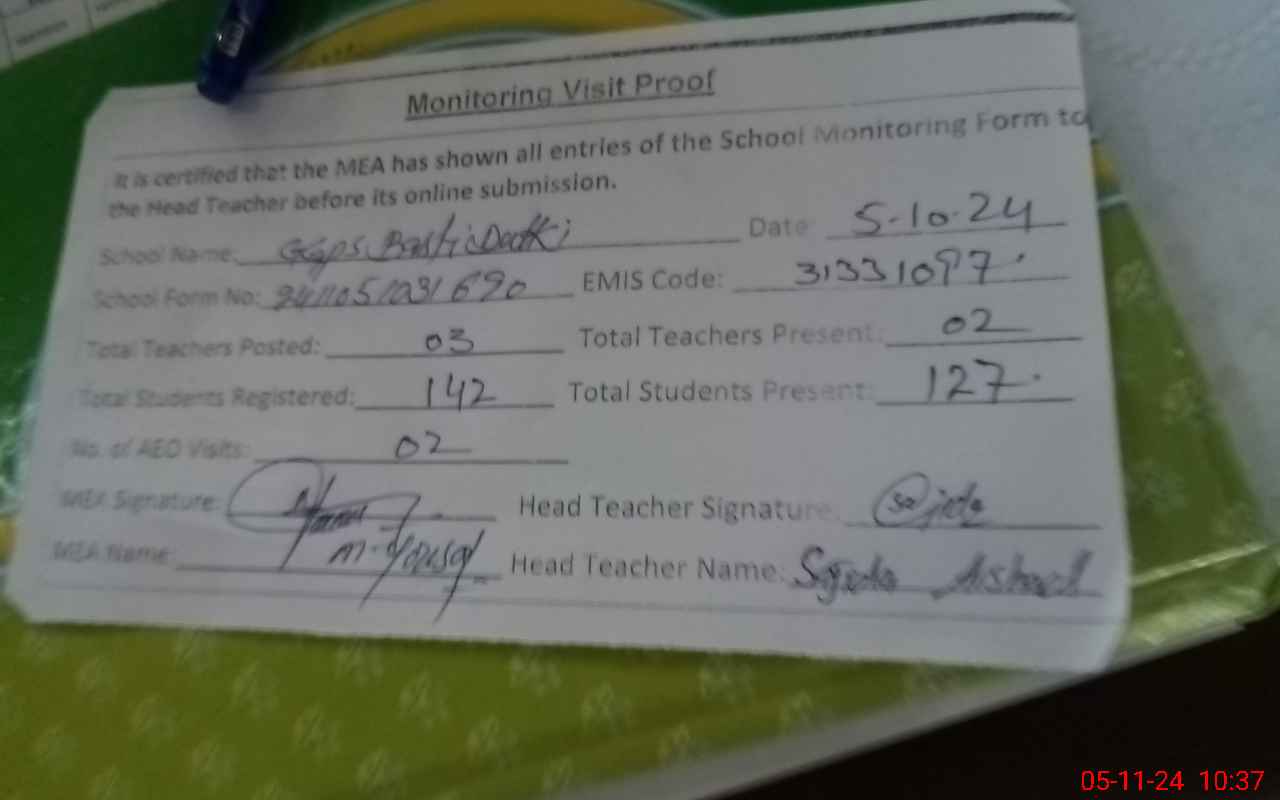 Monitoring Visit Proof
It is certified that the MEA has shown all entries of the School Monitoring Form to
the Head Teacher before its online submission.
School Name: GGPS Basti Date: 5-10-24
School Form No: EMIS Code: 31331097
Total Teachers Posted: 03 Total Teachers Present: 02
Total Students Registered: 142 Total Students Present: 127
No. of AEO Visits: 02
MEA Signature: Head Teacher Signature: Sajida
MEA Name: M. Yousaf Head Teacher Name: Sajida Ashraf
05-11-24 10:37